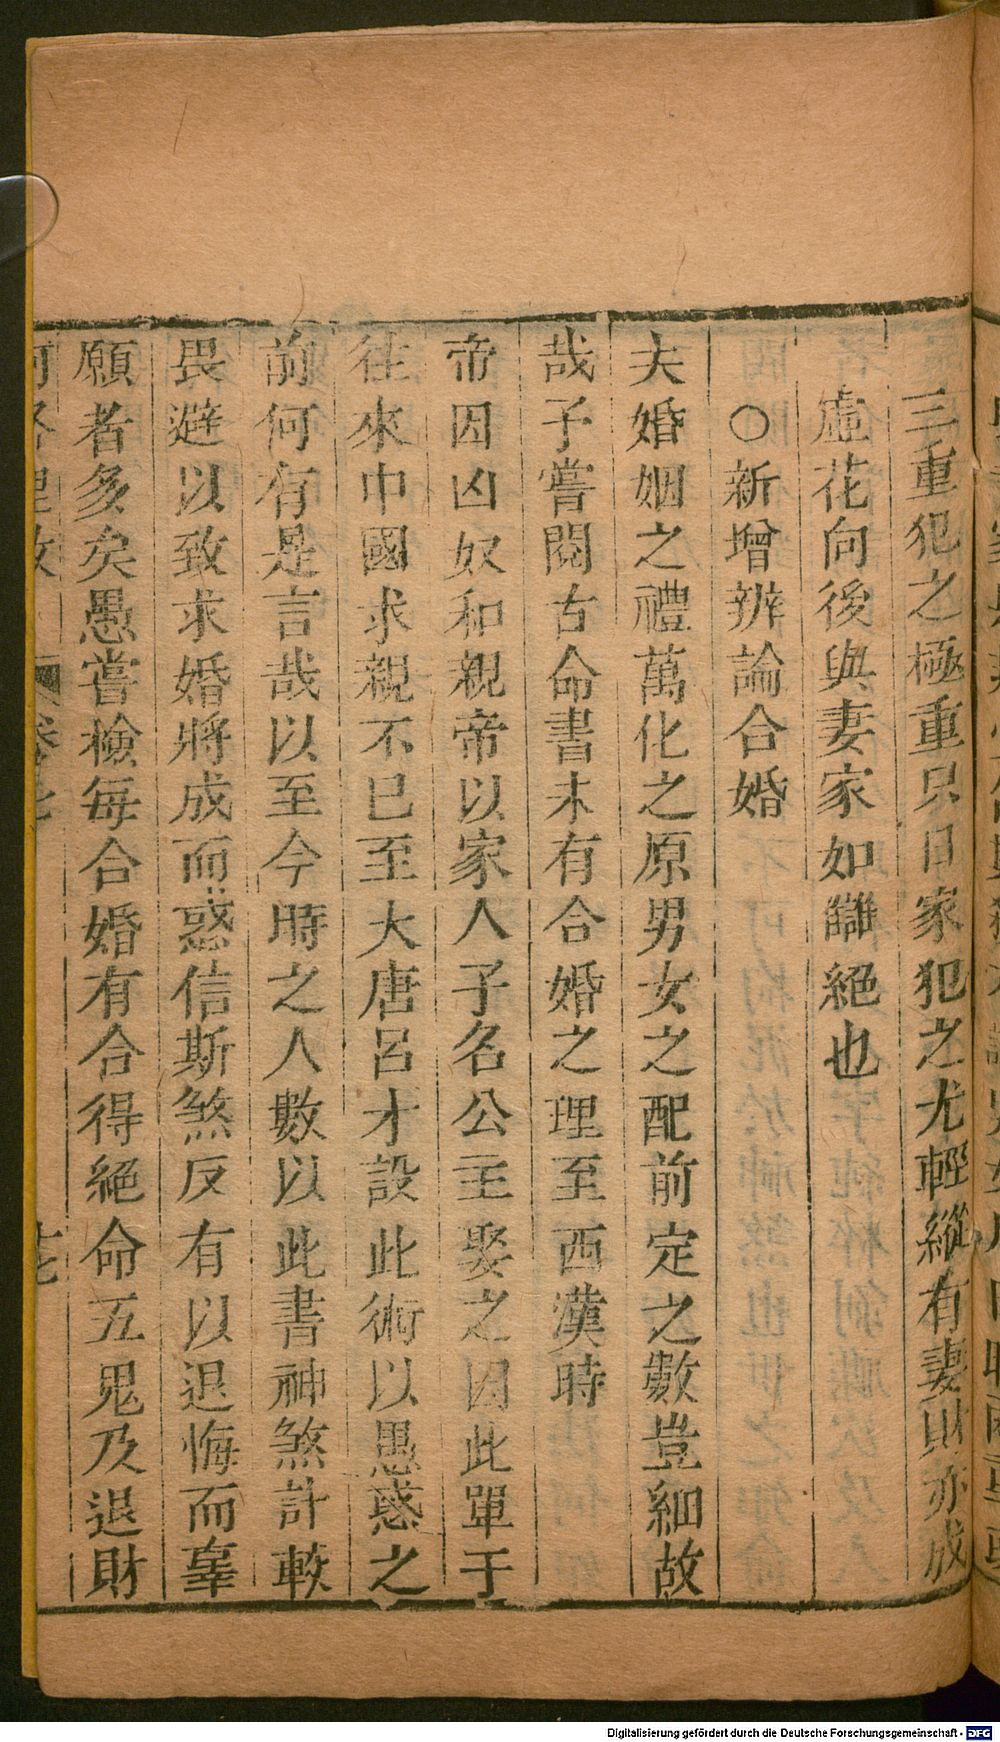 三重犯之極重只日家犯之尤輕縱有妻財亦成
虛花向後與妻家如讎絕也
○新增辨論合婚
夫婚姻之禮萬化之原男女之配前定之數豈細故
哉子嘗閱古命書未有合婚之理至西漢時
帝因凶奴和親帝以家人子名公主娶之因此單于
往來中國求親不已至大唐呂才設此術以愚惑之
前何有是言哉以至今時之人數以此書神煞計較
畏避以致求婚將成而惑信斯煞反有以退悔而辜
願者多矣愚嘗檢每合婚有合得絕命五鬼及退財
Digitalisierung gefördert durch die Deutsche Forschungsgemeinschaft - DFG